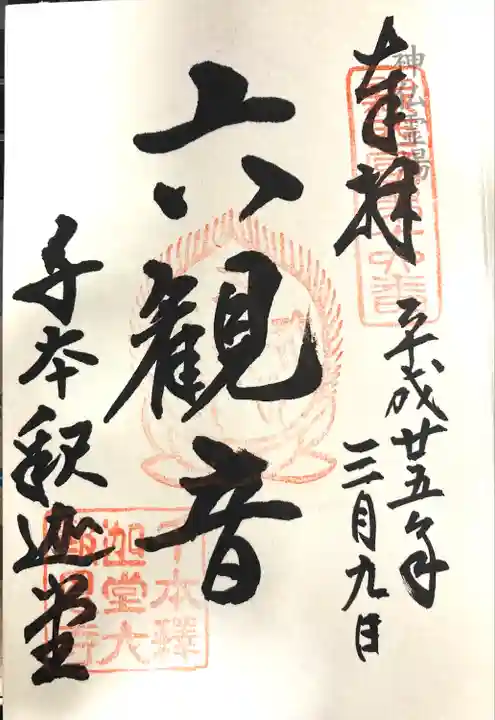 奉拝
神仏霊場
平成廿五年
三月九日
六観音
千本釈迦堂
千本釋
迦堂大
報恩寺